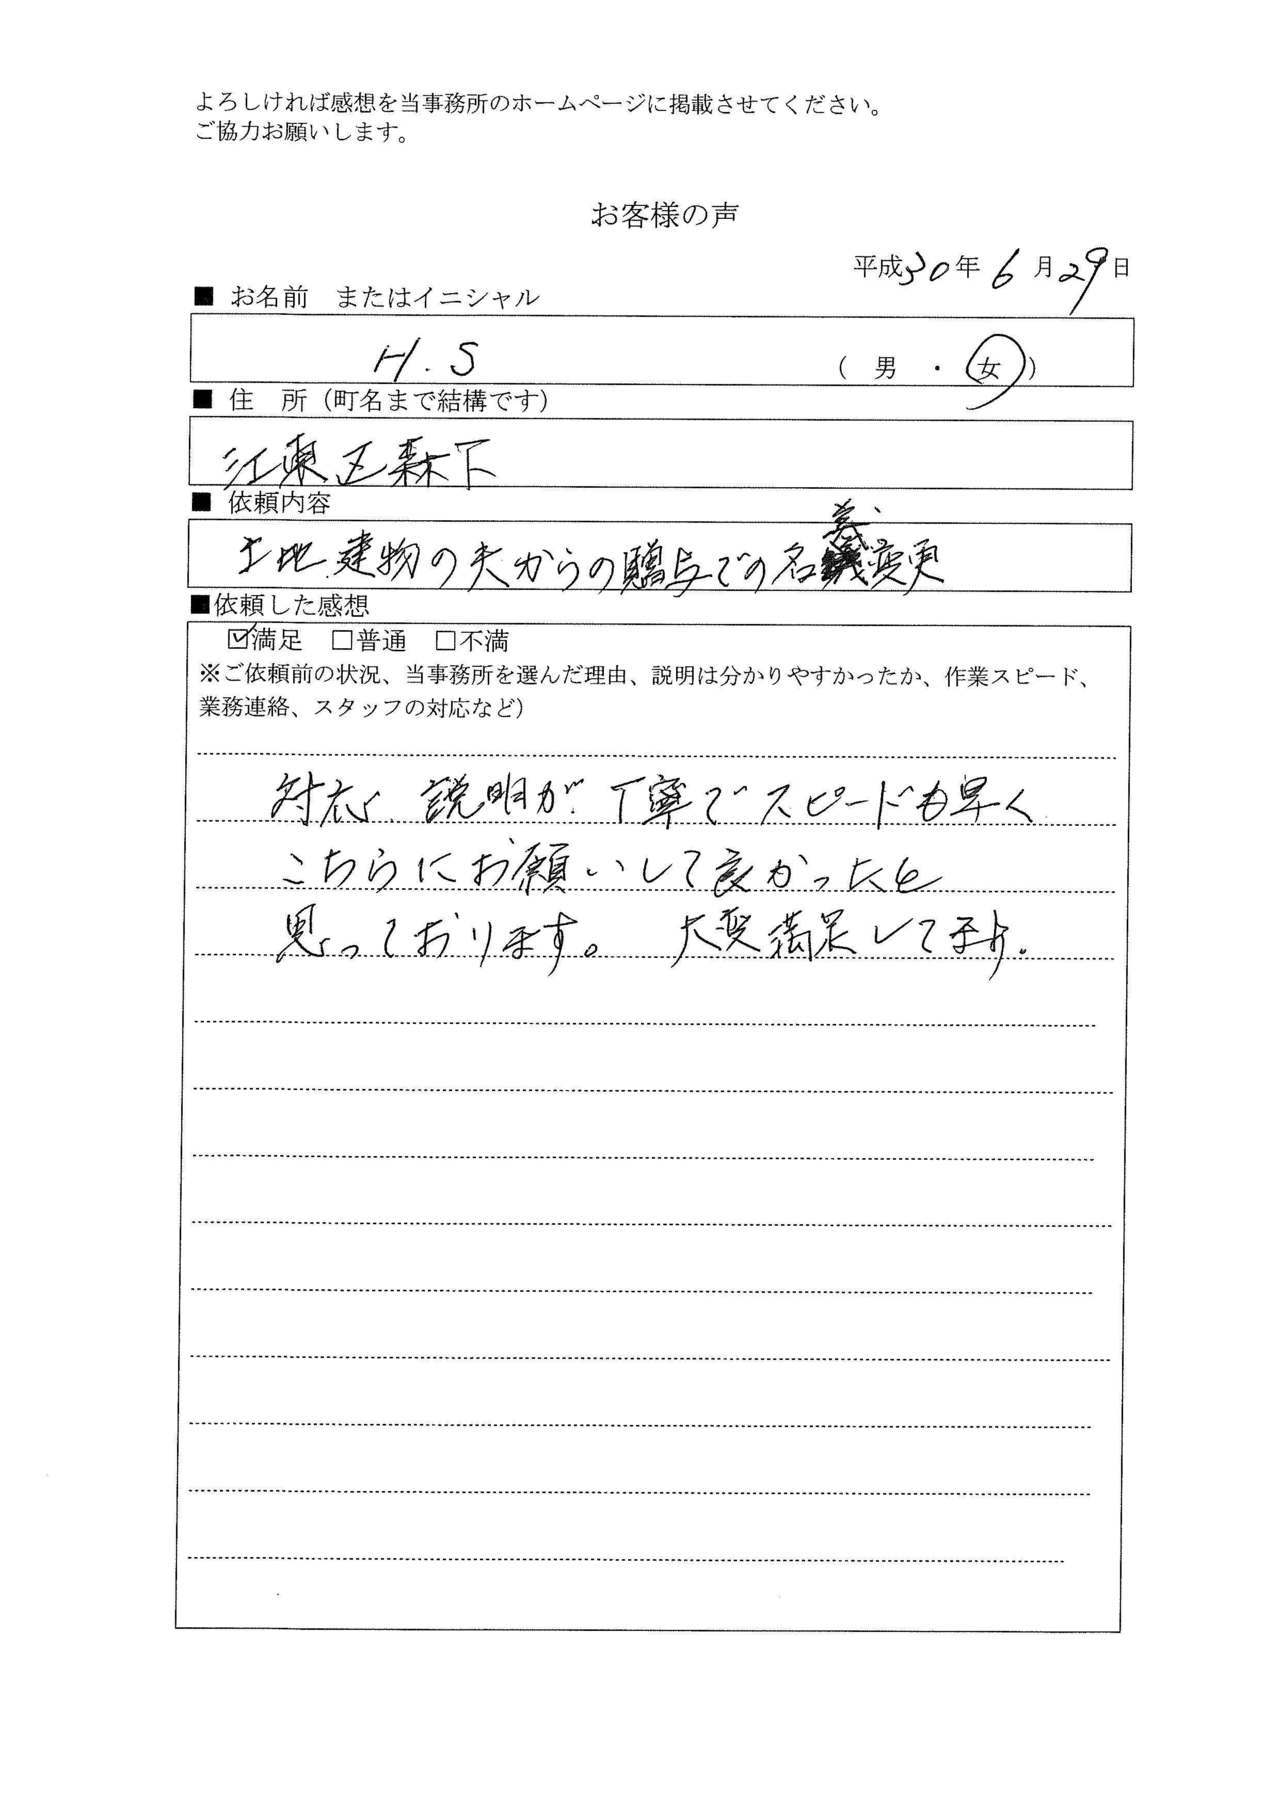 よろしければ感想を当事務所のホームページに掲載させてください。
ご協力お願いします。
お客様の声
平成30年6月29日
■ お名前 またはイニシャル
H.S （ 男 ・ 女 ）
■ 住 所（町名まで結構です）
江東区森下
■ 依頼内容
土地建物の夫からの贈与での名義変更
■依頼した感想
☑満足 □普通 □不満
※ご依頼前の状況、当事務所を選んだ理由、説明は分かりやすかったか、作業スピード、
業務連絡、スタッフの対応など）
対応、説明が丁寧でスピードも早く
こちらにお願いして良かったと
思っております。 大変満足してます.